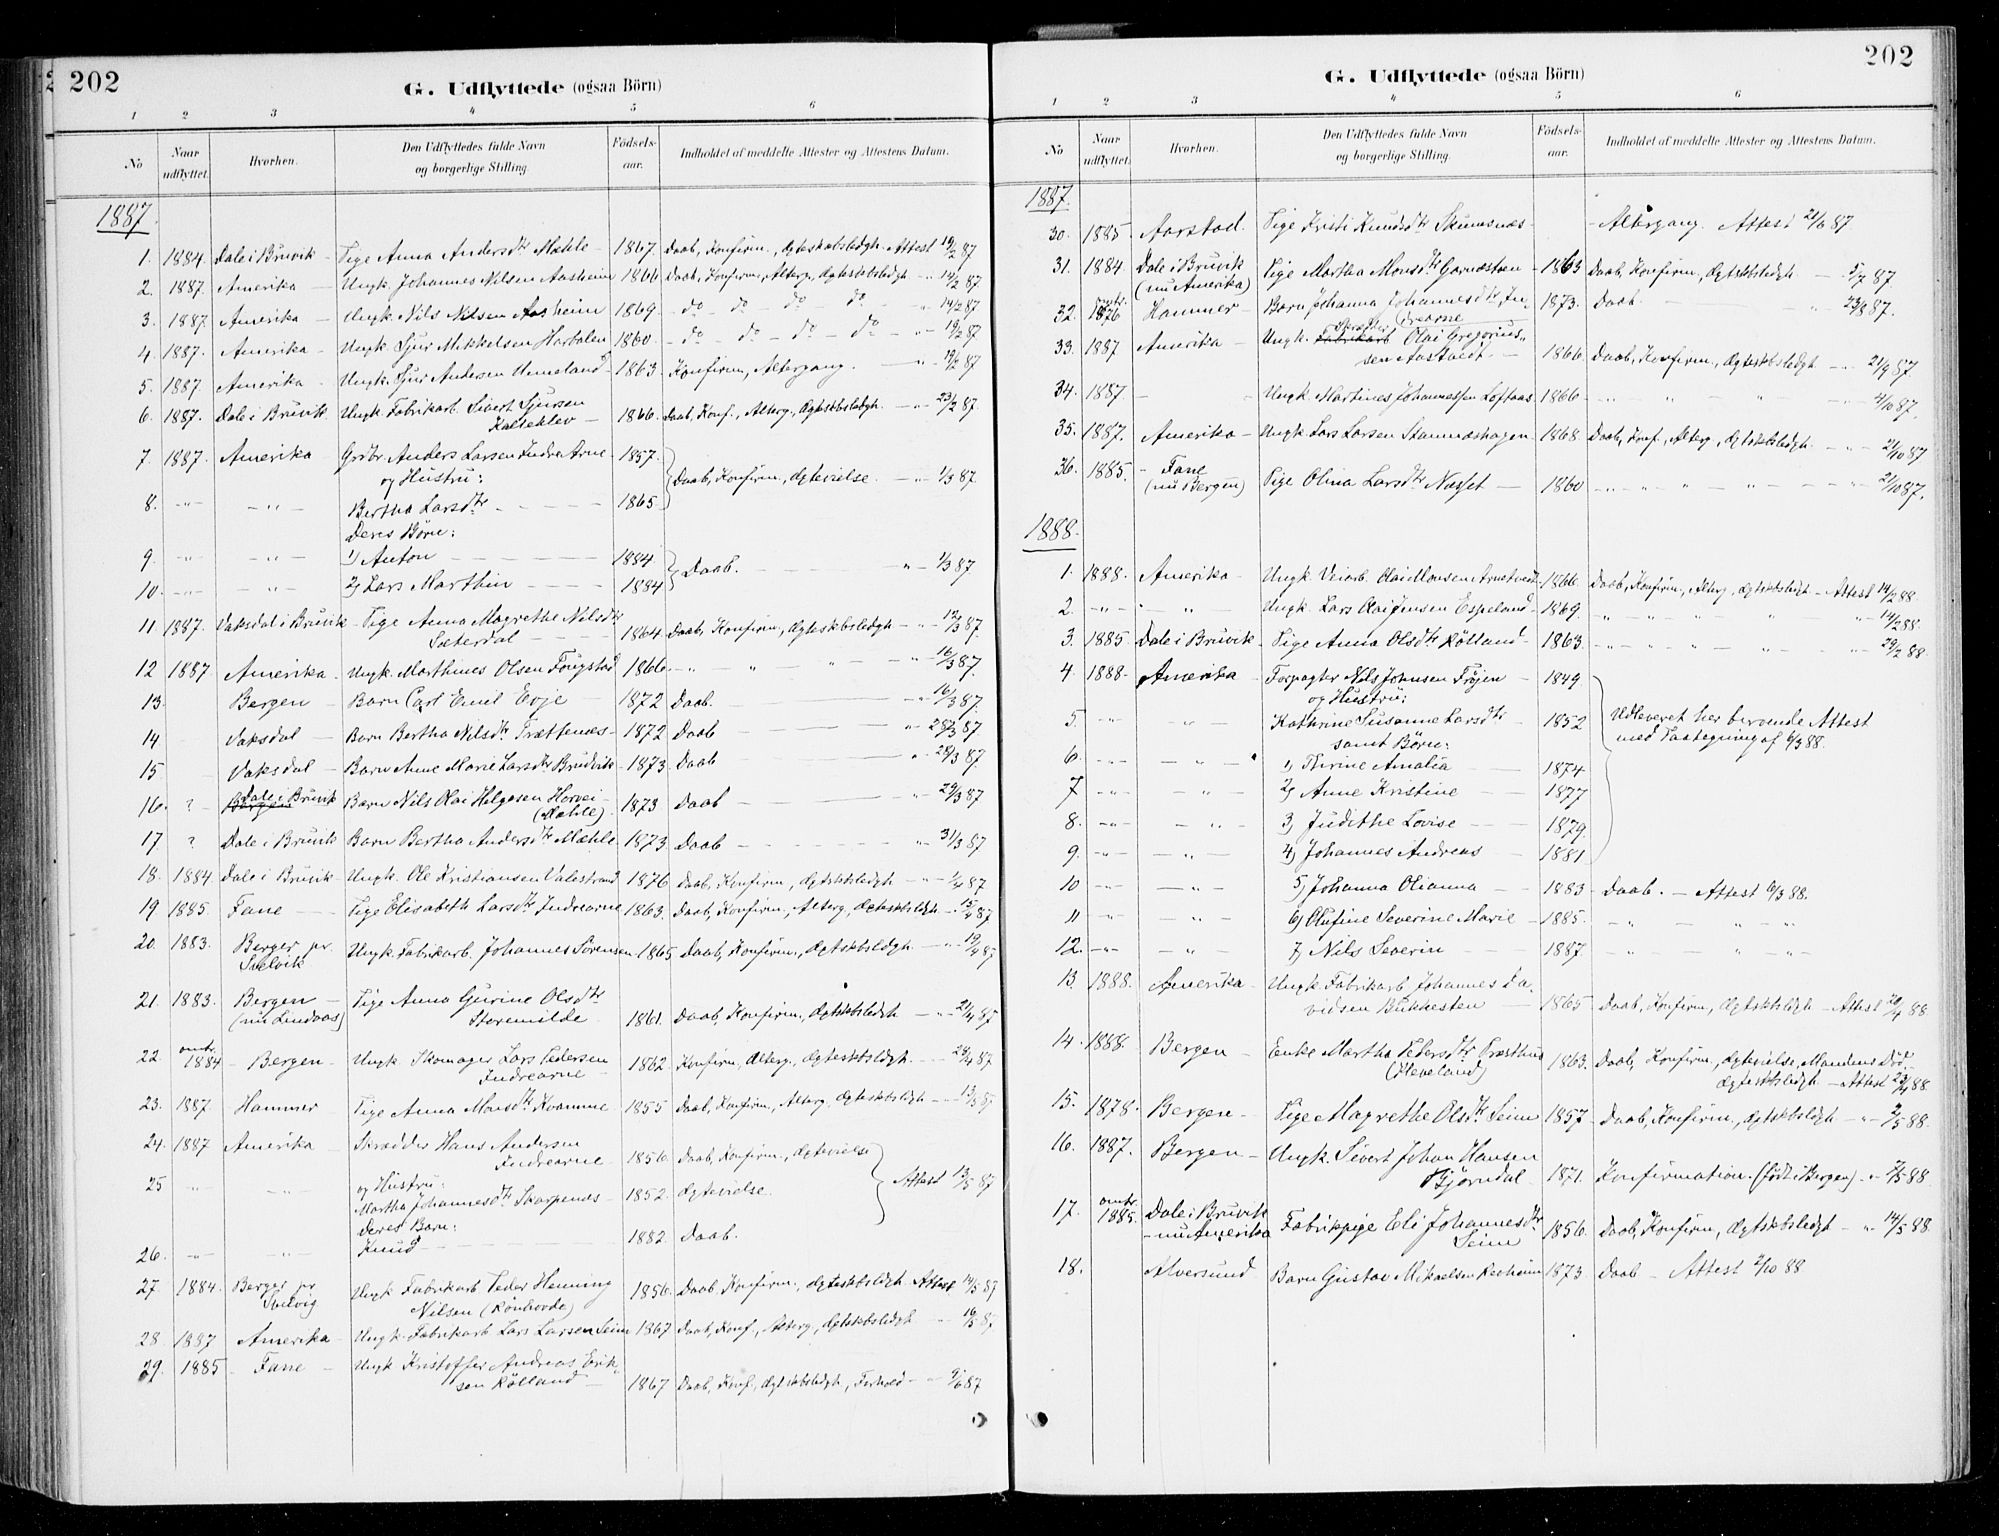 202
G. Udflyttede (ogsaa Börn)
1 2 3 4 5 6
No Naar udflyttet. Hvorhen. Den Udflyttedes fulde Navn og borgerlige Stilling. Födsels-aar. Indholdet af meddelte Attester og Attestens Datum.
1887.
1. 1884. Dale i Bruvik - Pige Anna Andersdtr Mæhle - 1867. Daab, Konfirm., Ægteskabsledgh. Attest 19/2 87
2. 1887. Amerika - Ungk. Johannes Nilsen Aasheim 1866 Daab, Konfirm., Alterg., Ægteskbsledgh - " 14/2 87.
3. 1887. Amerika - Ungk. Nils Nilsen Aasheim 1869 - do - do - do - do - " 14/2 87
4. 1887. Amerika - Ungk. Sjur Mikkelsen Herbalen 1860 - do do - do - do - " 19/2 87
5. 1887. Amerika - Ungk. Sjur Andersen Unneland 1863 Konfirm., Altergang. - " 19/2 87
6. 1887. Dale i Bruvik Ungk. Fabrikarb. Sivert Sjursen
Kalseklev - 1866. Daab, Konf., Alterg., Ægteskbsledgh. - " 23/2 87.
7. 1887. Amerika - Grdbr. Anders Larsen Indre Arne 1857.
og Hustru: Daab, Konfirm., Ægtevielse - " - 1/3 87.
8. - " - - " - Bertha Larsdtr - 1865.
Deres Børn:
9. - " - - " - 1) Anton - 1884. Daab. - " 1/3 87
10. - " - - " - 2) Lars Marthin - 1884
11. 1887. Vaksdal i Bruvik - Pige Anna Magrethe Nilsdtr
Sæterdal - 1864 Daab, Konfirm., Ægteskbsledgh - " 12/3 87
12 1887. Amerika - Ungk. Marthinus Olsen Fougstad 1866 - " " " " 16/3 87.
13. Bergen - Barn Carl Emil Evje - 1872 Daab. - " 16/3 87.
14 Vaksdal - Barn Bertha Nilsdtr Trættenæs - 1872 Daab - " 28/3 87
15 Vaksdal - Barn Anne Marie Larsdtr Brudvik - 1873 Daab - " 28/3 87.
16. ? Bergen Dale i Bruvik Barn Nils Olai Helgesen Horvei -
(Mæhle) 1873 Daab - 29/3 87
17 ? Dale i Bruvik Barn Bertha Andersdtr Mæhle 1873 Daab - " 31/3 87
18. 1884 Dale i Bruvik - Ungk. Ole Kristiansen Valestrand 1876 Daab, Konfirm., Ægtskbsledgh - " 1/4 87
19. 1885. Fane - Pige Elisabeth Larsdtr Indrearne 1863. Daab, Konfirm., Alterg., Ægteskbsledgh - " 15/4 87
20. 1883. Berger pr. Svelvik Ungk. Fabrikarb. Johannes Sørensen 1865 Daab, Konfirm., Ægtskbsledgh - " 19/4 87
21. 1883. Bergen - (nu Lindaas) Pige Anna Gurine Olsdtr
Storemilde 1861. Daab, Konfirm., Ægtskbsledgh - " - 21/4 87
22. omtr. 1884 - Bergen - Ungk. Skomager Lars Pedersen
Indrearne - 1862 Konfirm., Alterg., Ægteskbsledgh - 28/4 87
23. 1887. Hammer - Pige Anna Monsdtr Kvamme - 1855 Daab, Konfirm., Alterg. Ægteskbsledgh - 13/5 87
24. 1887 Amerika - Skrædder Hans Andersen
Indrearne - 1856. Daab, Konfirm., Ægtevielse
25 " - " - og Hustru: Attest 13/5 87
Martha Johannesdtr Skarpenæs - 1852. Ægtevielse.
Deres Barn:
26. - " - " - Knud - 1882. Daab.
27. 1884. Berger pr. Svelvig Ungk Fabrikarb Peder Henning
Nilsen (Rönhovde) 1856. Daab, Konfirm., Ægteskbsledgh. Attest 14/5 87
28 1887 Amerika - Ungk. Fabrikarb. Lars Larsen Seim 1867 Daab, Konf., Alterg., Ægtskbsledgh - " 16/5 87
29. 1885 - Fane - Ungk Kristoffer Andreas Erik-
sen Rölland - 1867 Daab, Konf., Ægtskbsledgh, Forhold - 9/6 87
202
G. Udflyttede (ogsaa Börn)
1 2 3 4 5 6
No Naar udflyttet. Hvorhen. Den Udflyttedes fulde Navn og borgerlige Stilling. Födsels-aar. Indholdet af meddelte Attester og Attestens Datum.
1887.
30. 1885. Aarstad. Pige Kristi Knudsdtr Skumsnæs - Altergang. Attest 21/6 87.
31. 1884. Dale i Bruvik (nu Amerika) Pige Martha Monsdtr Garnæstøen - 1863 Daab, Konfirm., Ægteskbsledgh - 5/7 87.
32. omtr. 1876 Hammer - Barn Johanna Johannesdtr In-
drearne 1873. Daab. - " 23/8 87.
33. 1887 Amerika - Ungk. Fabrikarb Skræder Olai Gregorius-
sen Aastvedt - 1866. Daab, Konfirm., Ægteskbsledgh. - " 21/9 87.
34. 1887. - - Ungk. Martines Johannessen Loftaas 1866 - " " " " 4/10 87.
35. 1887. Amerika - Ungk. Lars Larsen Stamnæshagen - 1868. Daab, Konf., Alterg., Ægtskbsledgh. - " - 21/10 87
36. 1885. - Fane (nu Bergen) Pige Olina Larsdtr Næsset - 1860 - " - " - " - " - 21/10 87.
1888.
1. 1888. Amerika - Ungk. Veiarb. Olai Monsen Arnetveit - 1866. Daab, Konfirm., Alterg., Ægteskbsledgh - Attest 14/2 88.
2. - " - " - Ungk. Lars Olai Jensen Espeland - 1869. " " " " " 14/2 88.
3. 1885 Dale i Bruvik - Pige Anna Olsdtr Rölland - 1863. - " - " - " - " 29/2 88.
4 1888. Amerika - Forpagter Nils Johnsen Fröjen - 1849
og Hustru:
5. - " - " - Kathrine Susanne Larsdtr - 1852 Udleveret her beroende Attest
samt Børn: med Paategning af 6/3 88.
6. - " - " 1) Thrine Amalia - 1874.
7 - " - " - 2) Anne Kristine - 1877
8. - " - - " - 3) Judithe Lovise - 1879.
9. - " - - " - 4) Johannes Andreas - 1881
10 - " - - " - 5) Johanna Olianna - 1883 Daab. - Attest 6/3 88.
11 - " - - " - 6) Olufine Severine Marie - 1885. - " " - " -
12. - " - - " - 7) Nils Severin - 1887. - " " - " -
13. 1888. Amerika - Ungk. Fabrikarb Johannes Da-
vidsen Bukkesten - 1865 Daab, Konfirm., Ægtskbsledgh - Attest 20/4 88
14. 1888. Bergen - Enke Martha Pedersdtr Præsthus
(Hleveland) 1863. Daab, Konfirm., Ægtevielse, Mandens Död,
Ægteskbsledgh - Attest 23/4 88.
15. 1878. Bergen - Pige Magrethe Olsdtr Seim 1857 Daab, Konfirm., Ægtskbsledgh - " - 2/5 88.
16. 1887. Bergen - Ungk. Sivert Johan Hansen
Bjørndal 1871. Konfirmation. (født i Bergen) - " 7/5 88.
17. omtr. 1885. Dale i Bruvik - nu Amerika Fabrikpige Eli Johannesdtr
Seim 1856. Daab, Konfirm., Ægtskbsledgt - " 14/5 88
18. Alversund Barn Gustav Mikaelsen Redheim 1873. Daab - Attest 2/10 88